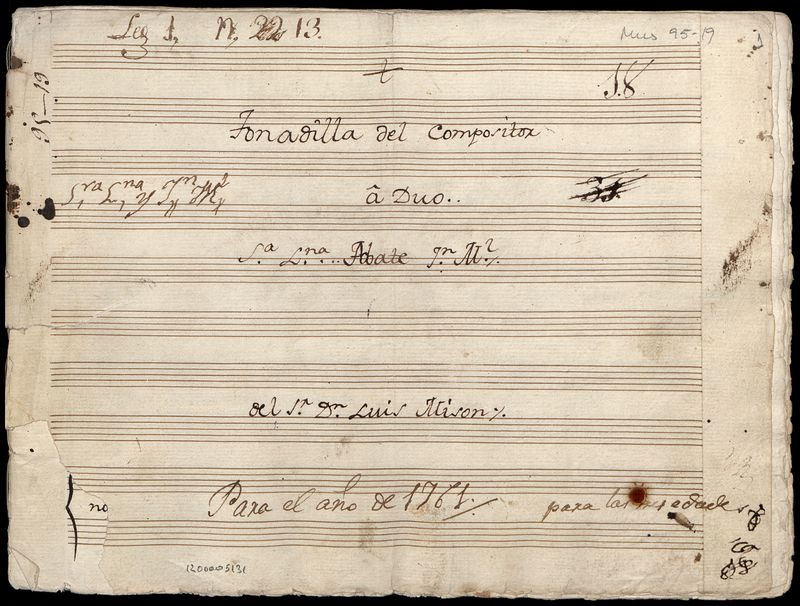 Leg 1, N, 22 13.
Mus 95-19
1
95-19
+
18
Tonadilla del Compositor
S,ra L,na y Jn Ml
â Duo..
31
S.a L.na.. Abate Jn Ml.
del Sr. Dn. Luis Mison
Para el año de 1761.
para las
no
1200005131